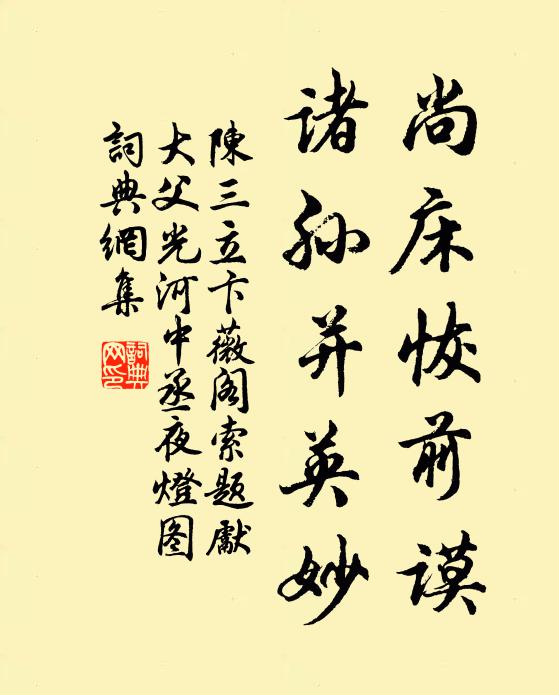 尚床恢前谟
诸孙并英妙
陳三立卞薇阁索题獻
大父光河中丞夜燈图
詞典網集
詞典网印